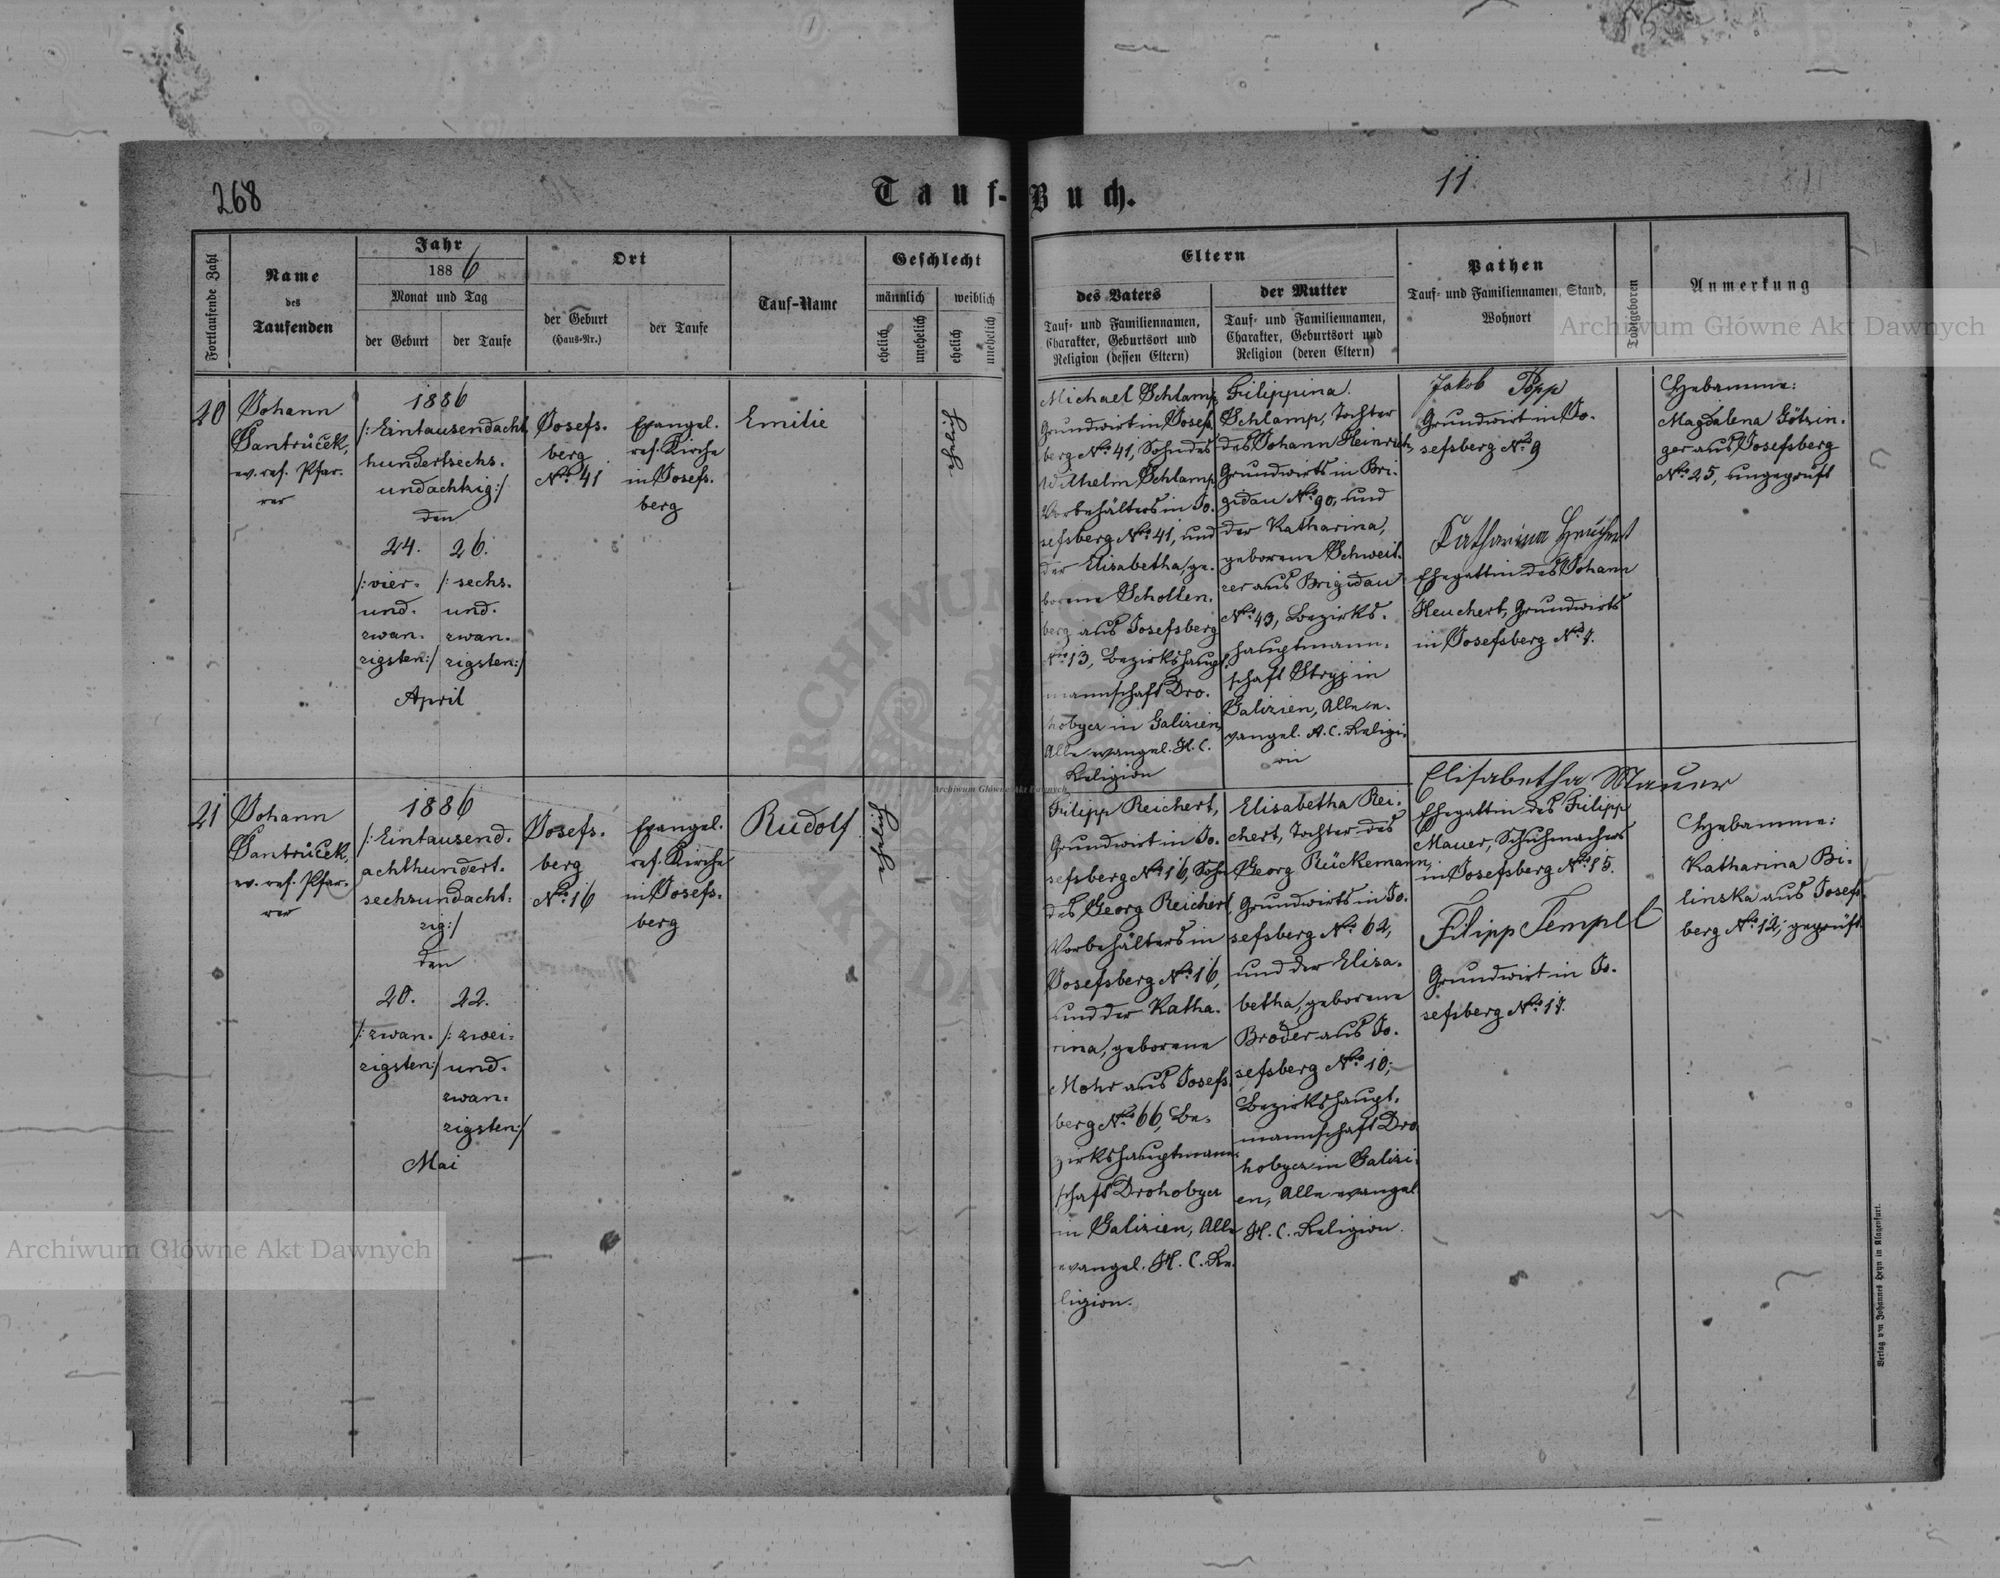 268
11.
Tauf-Buch.
Fortlaufende Zahl
Name
des
Taufenden
Jahr
1886
Monat und Tag
der Geburt
der Taufe
Ort
der Geburt
(Haus-Nr.)
der Taufe
Tauf-Name
Geschlecht
männlich
weiblich
ehelich
unehelich
ehelich
unehelich
Eltern
des Vaters
Tauf- und Familiennamen,
Charakter, Geburtsort und
Religion (dessen Eltern)
der Mutter
Tauf- und Familiennamen,
Charakter, Geburtsort und
Religion (deren Eltern)
Pathen
Tauf- und Familiennamen, Stand,
Wohnort
Todtgeboren
Anmerkung
20
Johann
Jantruček,
ev. ref. Pfar-
rer
1886
/: Eintausendacht
hundertsechs-
undachtzig :/
den
24.
/: vier-
und-
zwan-
zigsten :/
26.
/: sechs-
und-
zwan-
zigsten :/
April
Josefs-
berg
No. 41
Evangel.
ref. Kirche
in Josefs-
berg
Emilie
ehelich
Michael Schlamp,
Grundwirt in Josefs-
berg No. 41, Sohn des
Wilhelm Schlamp,
Vorbehälters in Jo-
sefsberg No. 41, und
der Elisabetha, ge-
borene Schollen-
berg aus Josefsberg
No. 13, Bezirkshaupt-
mannschaft Dro-
hobycz in Galizien,
Alle evangel. H. C.
Religion
Filippina
Schlamp, Tochter
des Johann Heinrich,
Grundwirts in Bri-
gidau No. 90, und
der Katharina,
geborene Schweit-
zer aus Brigidau
No. 43, Bezirks-
hauptmann-
schaft Stryj in
Galizien, Alle e-
vangel. A. C. Religi-
on
Jakob Popp
Grundwirt in Jo-
sefsberg No. 9
Katharina Heuchert
Ehegattin des Johann
Heuchert, Grundwirts
in Josefsberg No. 7.
Hebamme:
Magdalena Götzin-
ger aus Josefsberg
No. 25, ungeprüft
21
Johann
Jantruček,
ev. ref. Pfar-
rer
1886
/: Eintausend-
achthundert-
sechsundacht-
zig :/
den
20.
/: zwan-
zigsten :/
22.
/: zwei-
und-
zwan-
zigsten :/
Mai
Josefs-
berg
No. 16
Evangel.
ref. Kirche
in Josefs-
berg
Rudolf
ehelich
Filipp Reichert,
Grundwirt in Jo-
sefsberg No. 16, Sohn
des Georg Reichert,
Vorbehälters in
Josefsberg No. 16,
und der Katha-
rina, geborene
Mohr aus Josefs-
berg No. 66, Be-
zirkshauptmann-
schaft Drohobycz
in Galizien, Alle
evangel. H. C. Re-
ligion.
Elisabetha Rei-
chert, Tochter des
Georg Rückemann,
Grundwirts in Jo-
sefsberg No. 62,
und der Elisa-
betha, geborene
Bröder aus Jo-
sefsberg No. 10;
Bezirkshaupt-
mannschaft Dro-
hobycz in Galizi-
en, Alle evangel.
H. C. Religion.
Elisabetha Mauer
Ehegattin des Filipp
Mauer, Schuhmachers
in Josefsberg No. 15.
Filipp Tempel
Grundwirt in Jo-
sefsberg No. 17.
Hebamme:
Katharina Bi-
linska aus Josefs-
berg No. 12, geprüft
Verlag von Johannes Heyn in Klagenfurt.
Archiwum Główne Akt Dawnych
Archiwum Główne Akt Dawnych
Archiwum Główne Akt Dawnych